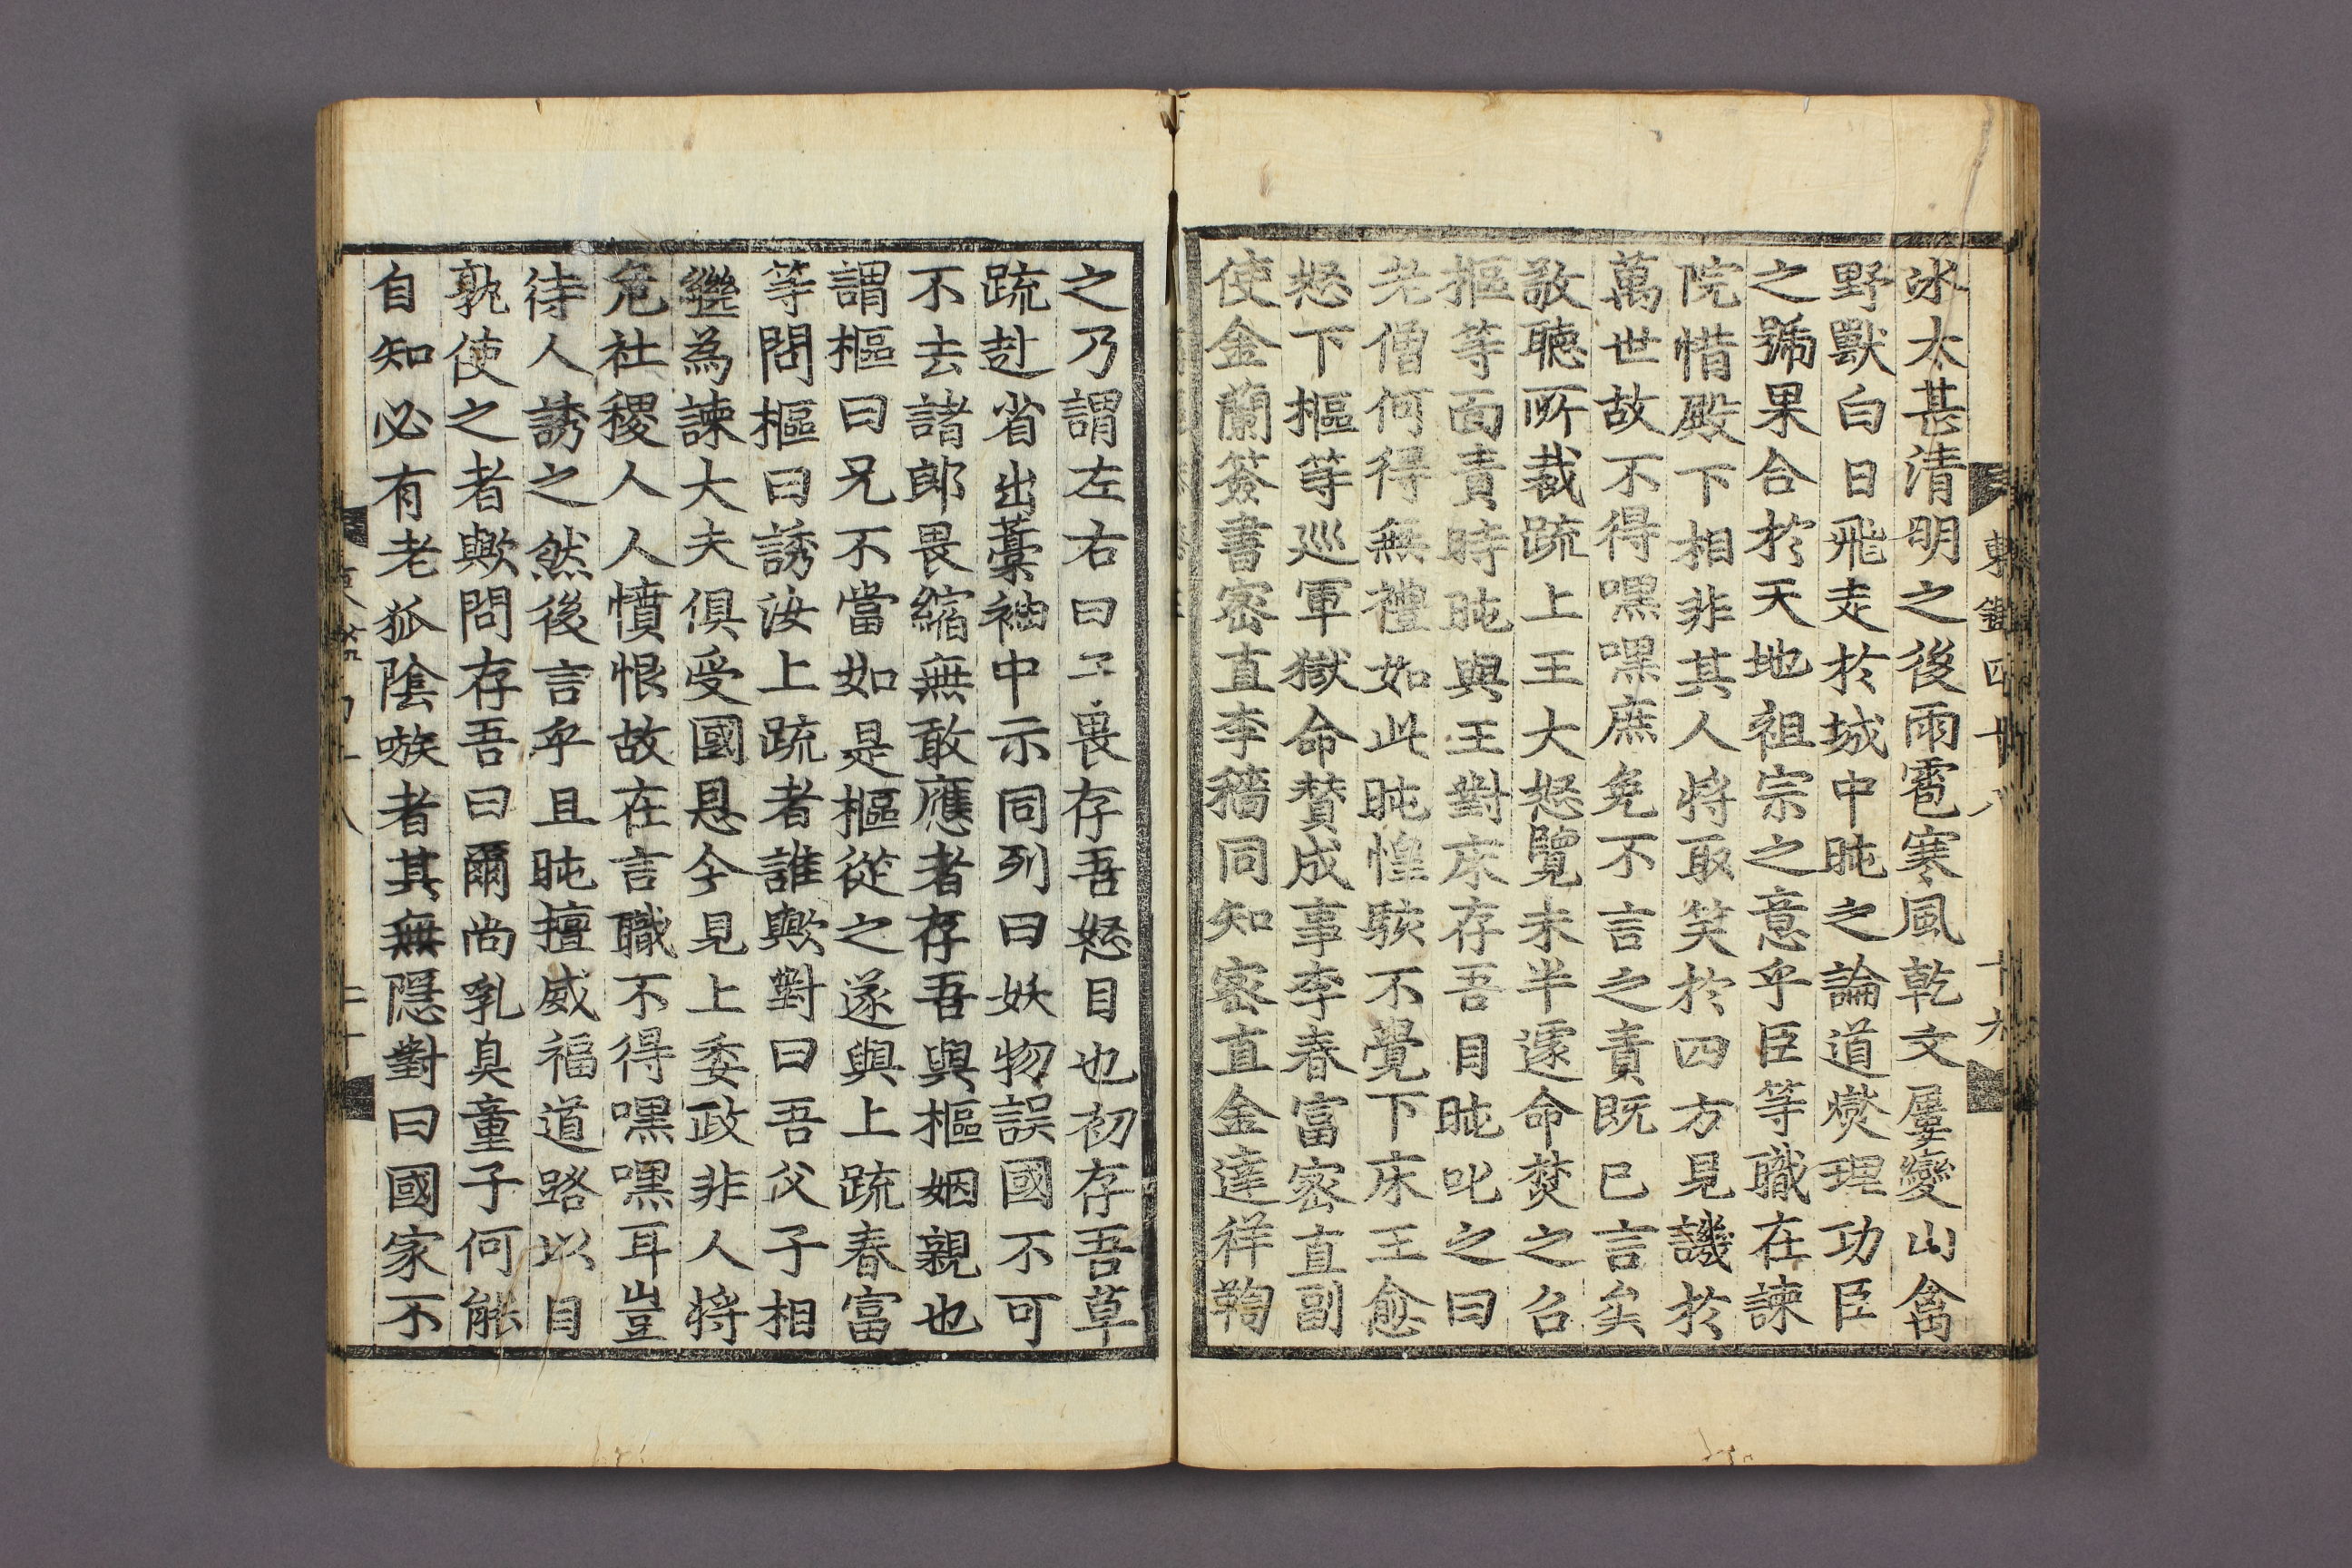 東鑑四十八 十九
氷太甚清明之後雨雹寒風乾文屢變山禽
野獸白日飛走於城中旽之論道燮理功臣
之號果合於天地祖宗之意乎臣等職在諫
院惜殿下相非其人將取笑於四方見譏於
萬世故不得嘿嘿庶免不言之責既已言矣
敢聽所裁疏上王大怒覽未半遽命焚之召
樞等面責時旽與王對床存吾目旽叱之曰
老僧何得無禮如此旽惶駭不覺下床王愈
怒下樞等巡軍獄命賛成事李春富密直副
使金蘭簽書密直李穡同知密直金達祥鞫
之乃謂左右曰予畏存吾怒目也初存吾草
疏赴省出藁袖中示同列曰妖物誤國不可
不去諸郎畏縮無敢應者存吾與樞姻親也
謂樞曰兄不當如是樞從之遂與上疏春富
等問樞曰誘汝上疏者誰歟對曰吾父子相
繼為諫大夫俱受國恩今見上委政非人將
危社稷人人憤恨故在言職不得嘿嘿耳豈
待人誘之然後言乎且旽擅威福道路以目
孰使之者歟問存吾曰爾尚乳臭童子何能
自知必有老狐陰嗾者其無隱對曰國家不